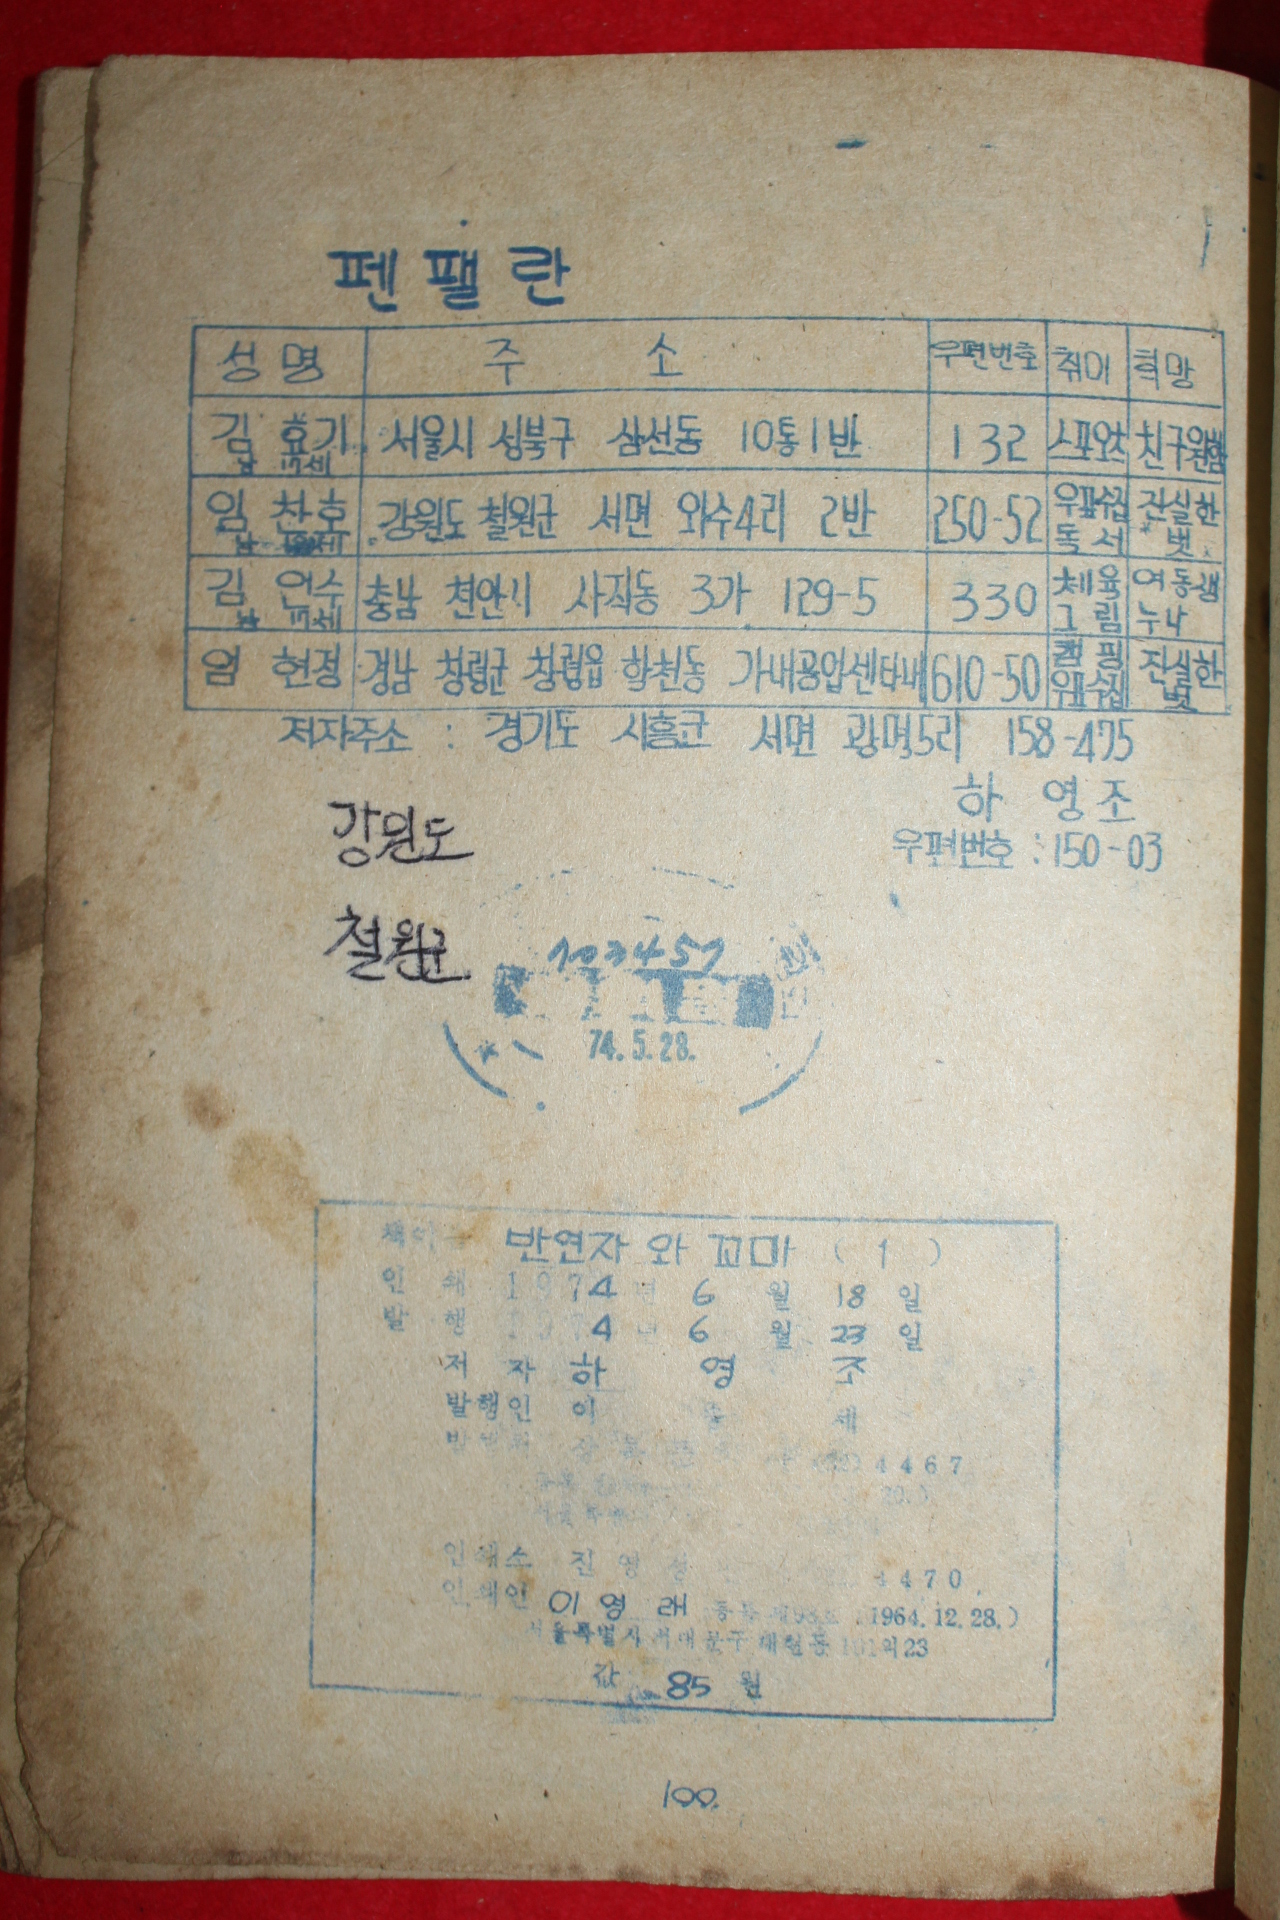 펜팰란
성명 주소 우편번호 취미 희망
김효기 서울시 성북구 삼선동 10통1반 132 스포오츠 친구원함
남 17세
임찬호 강원도 철원군 서면 와수4리 2반 250-52 우표수집 진실한
남 독서 벗
김연수 충남 천안시 사직동 3가 129-5 330 체육 여동생
남 17세 그림 누나
엄현정 경남 창령군 창령읍 학천동 가내공업센타내 610-50 캠핑 진실한
우표수집 벗
저자주소 : 경기도 시흥군 서면 광명5리 158-475
하영조
우편번호 : 150-03
강원도
철원군
74.5.28.
반연자와 꼬마 (1)
인쇄 1974년 6월 18일
발행 1974년 6월 23일
저자 하영조
발행인 이 세
4467
인쇄소 진영
4470
인쇄인 이영래 1964.12.28.)
서울특별시 서대문구 23
값 85원
100